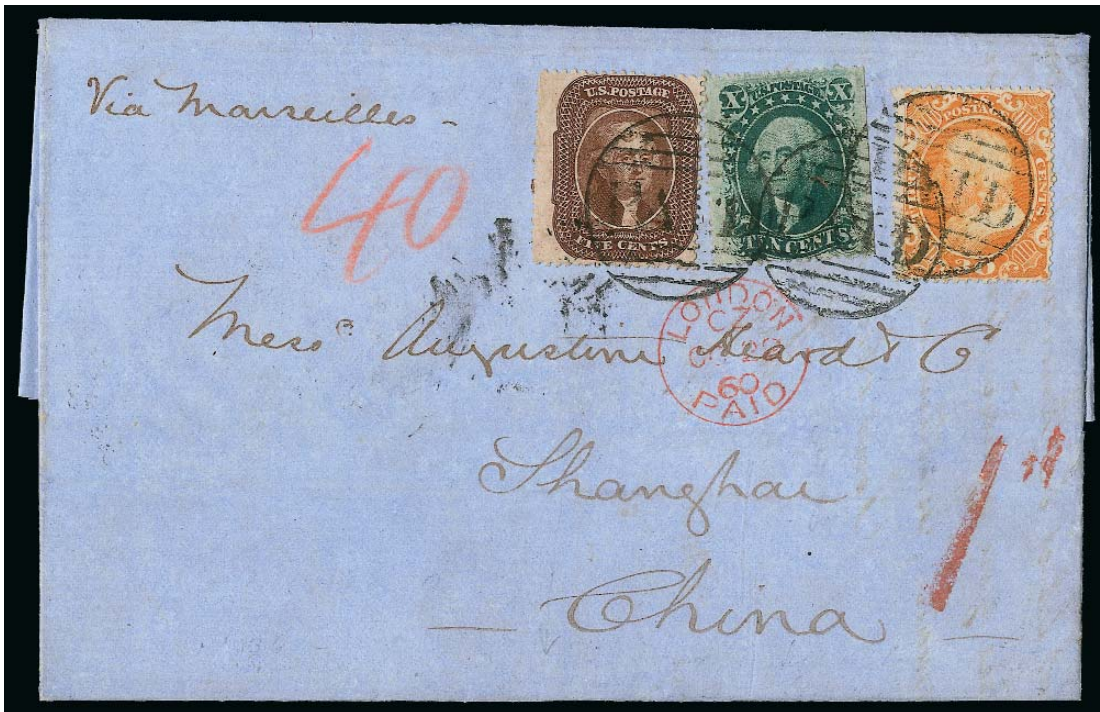 Via Marseilles -
40
U.S. POSTAGE
FIVE CENTS
X U.S. POSTAGE X
TEN CENTS
POSTAGE
CENTS
30
LONDON
CZ
60
PAID
Mess^rs Augustine Heard & C^o
Shanghai
China
1^d